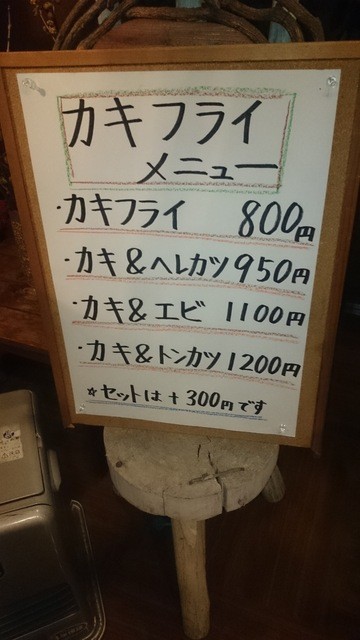 カキフライ
メニュー
・カキフライ 800円
・カキ&ヘレカツ 950円
・カキ&エビ 1100円
・カキ&トンカツ 1200円
☆セットは+300円です